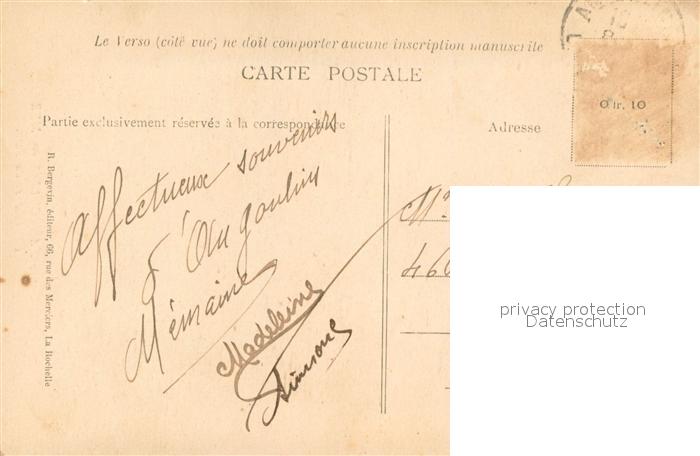 Le Verso (côté vue) ne doit comporter aucune inscription manuscrite
CARTE POSTALE
0 fr. 10
Partie exclusivement réservée à la correspondance
Adresse
Affectueux souvenirs
d'Angoulins
Mémaine
Madeleine
Simone
M
46
R. Bergevin, éditeur, 66, rue des Merciers, La Rochelle
privacy protection
Datenschutz